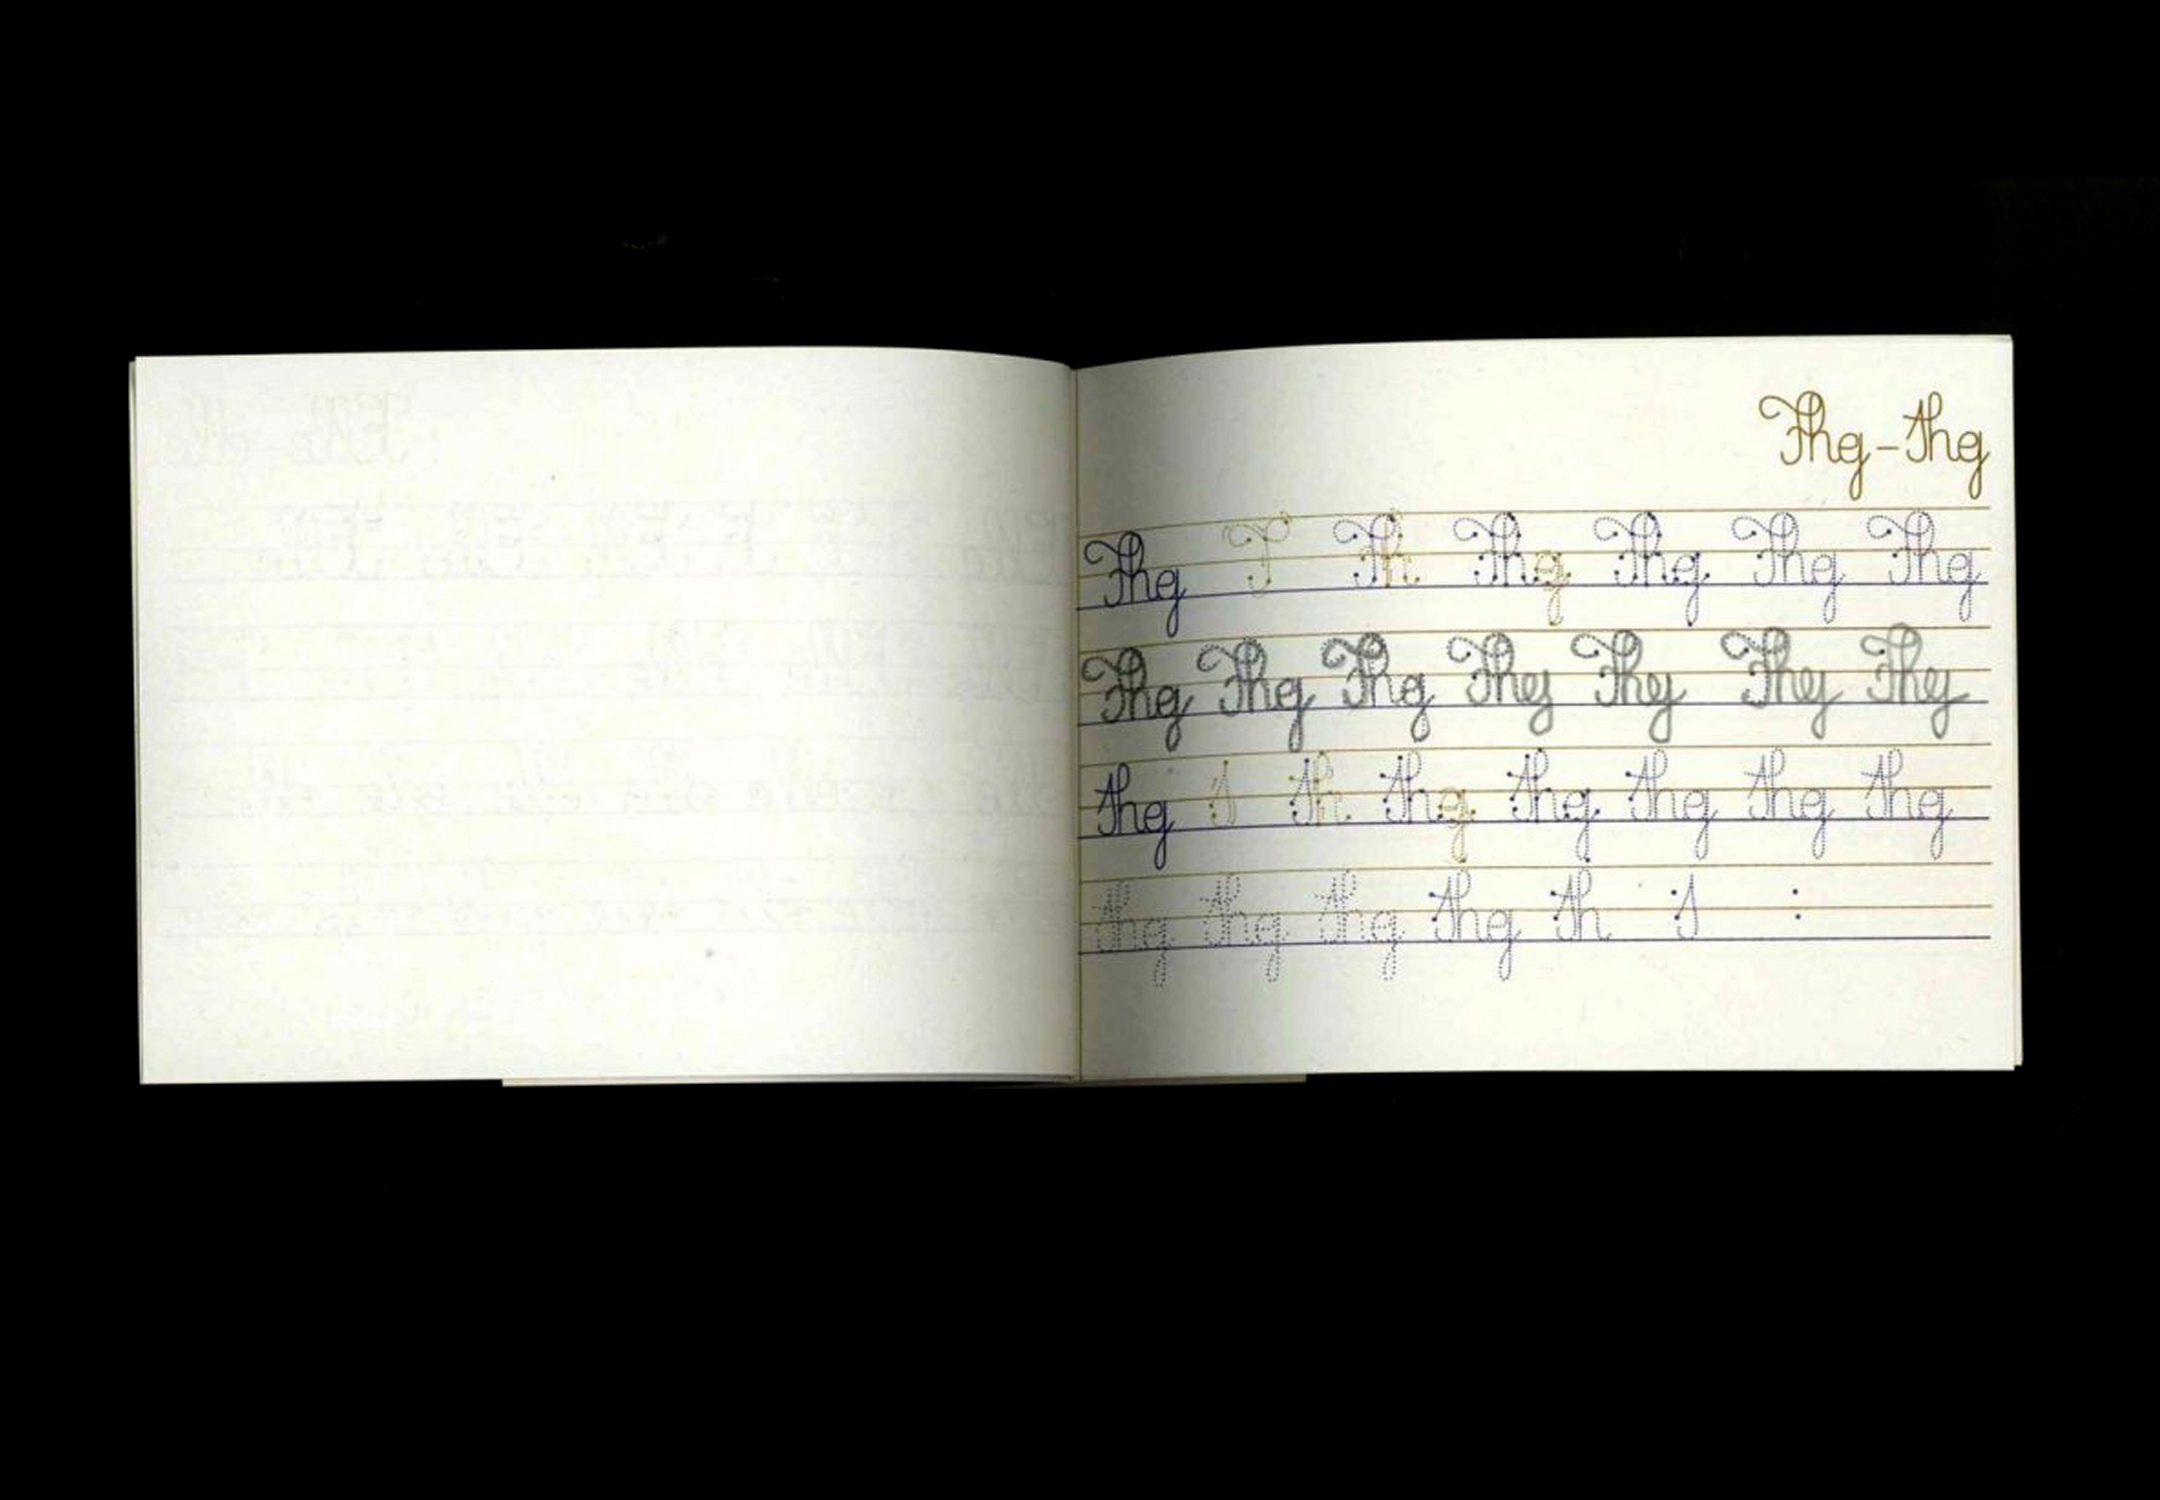 Thg - thg
Thg T Th Thg Thg Thg Thg
Thg Thg Thg Thg Thg Thg Thg
thg t th thg thg thg thg thg
thg thg thg thg th t :